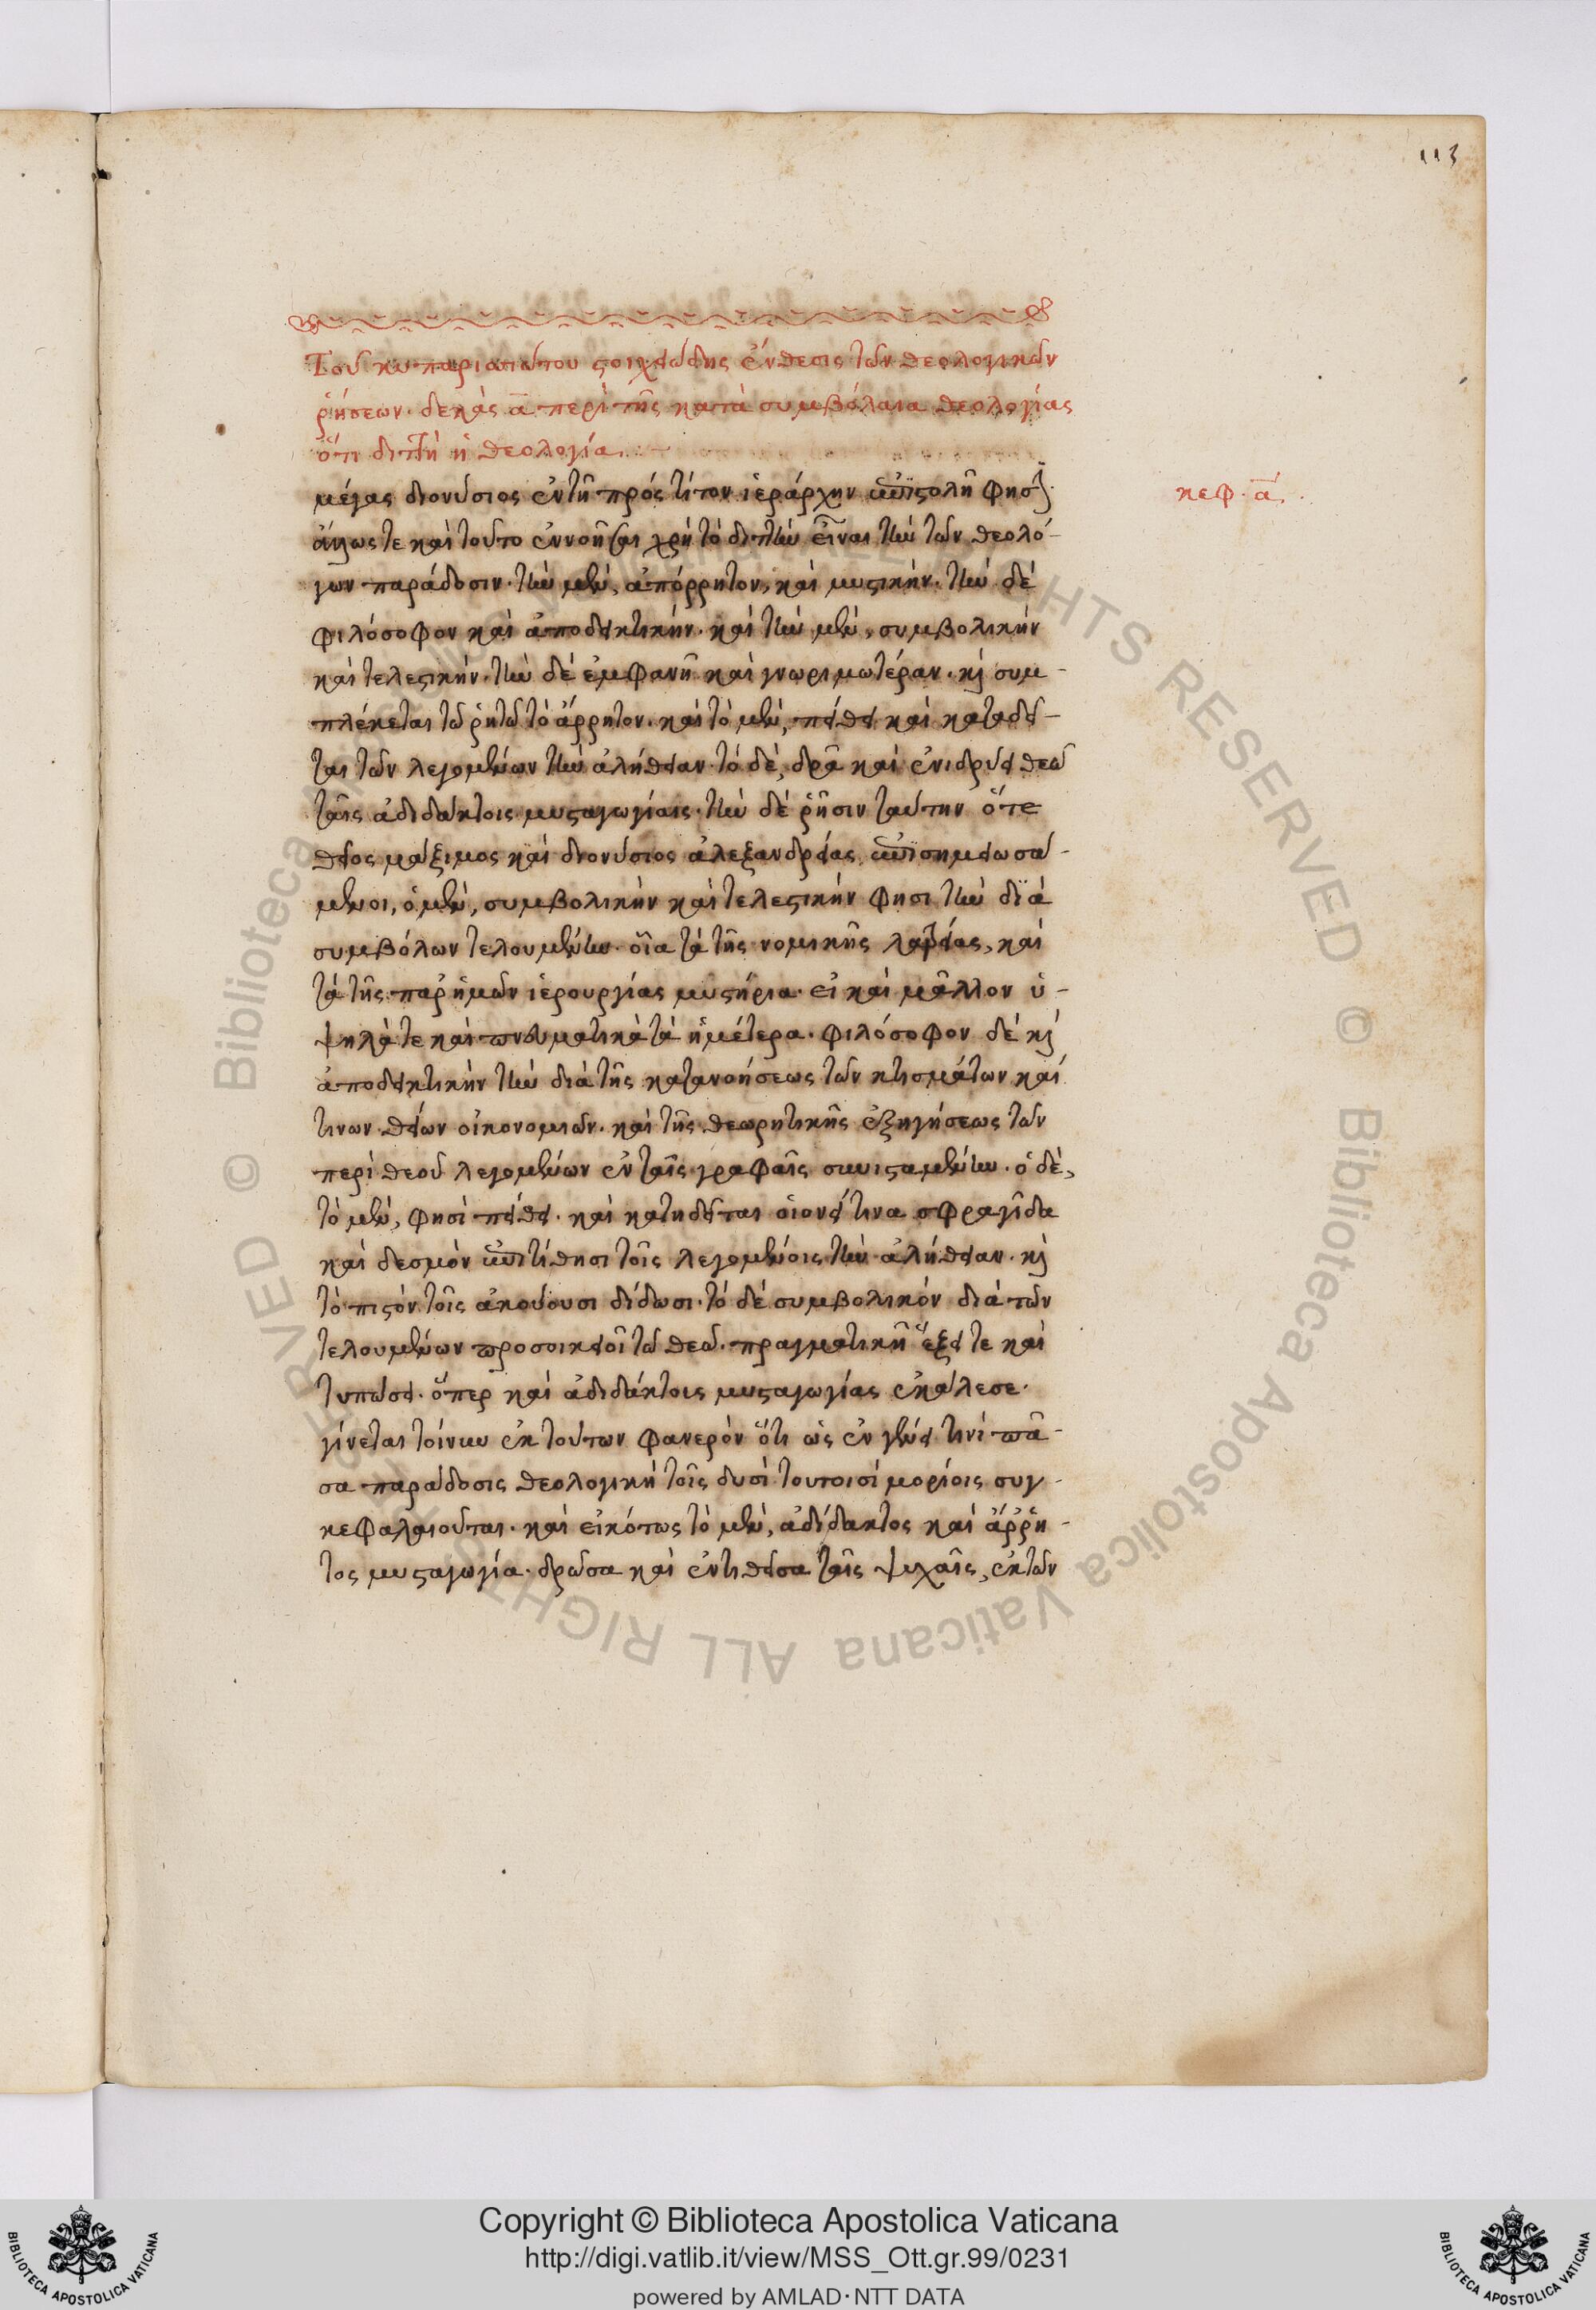 113
Τοῦ κυπαρισσιώτου στοιχειώδης ἔκθεσις τῶν θεολογικῶν
ῥήσεων. δεκὰς α περὶ τῆς κατὰ συμβόλαια θεολογίας
ὅτι διττὴ ἡ θεολογία.
κεφ. α.
μέγας διονύσιος ἐν τῇ πρός τίτον ἱεράρχην ἐπιστολῇ φησίν·
ἄλλως τε καὶ τοῦτο ἐννοῆσαι χρὴ τὸ διττὴν εἶναι τὴν τῶν θεολό-
γων παράδοσιν. τὴν μὲν, ἀπόρρητον, καὶ μυστικήν. τὴν δὲ
φιλόσοφον καὶ ἀποδεικτικήν. καὶ τὴν μὲν, συμβολικήν
καὶ τελεστικήν. τὴν δὲ ἐμφανῆ καὶ γνωριμωτέραν. καὶ συμ-
πλέκεται τῷ ῥητῷ τὸ ἄρρητον. καὶ τὸ μὲν, πείθει καὶ καταδεῖ-
ται τῶν λεγομένων τὴν ἀλήθειαν. τὸ δὲ, δρᾷ καὶ ἐνιδρύει θεῷ
ταῖς ἀδιδάκτοις μυσταγωγίαις. τὴν δὲ ῥῆσιν ταύτην ὅτε
θεῖος μάξιμος καὶ διονύσιος ἀλεξανδρείας ἐπισημειωσά-
μενοι, ὁ μὲν, συμβολικὴν καὶ τελεστικήν φησι τὴν διὰ
συμβόλων τελουμένην. οἷα τὰ τῆς νομικῆς λατρείας, καὶ
τὰ τῆς παρ' ἡμῶν ἱερουργίας μυστήρια. εἰ καὶ μᾶλλον ὑ-
ψηλά τε καὶ πνευματικὰ τὰ ἡμέτερα. φιλόσοφον δὲ καὶ
ἀποδεικτικὴν τὴν διὰ τῆς κατανοήσεως τῶν κτισμάτων καί
τινων θείων οἰκονομιῶν. καὶ τῆς θεωρητικῆς ἐξηγήσεως τῶν
περὶ θεοῦ λεγομένων ἐν ταῖς γραφαῖς συνισταμένην. ὁ δὲ,
τὸ μὲν, φησὶ πείθει. καὶ καταδεῖται οἱονεί τινα σφραγῖδα
καὶ δεσμὸν ἐπιτίθησι τοῖς λεγομένοις τὴν ἀλήθειαν. καὶ
τὸ πιστὸν τοῖς ἀκούουσι δίδωσι. τὸ δὲ συμβολικὸν διὰ τῶν
τελουμένων προσοικειοῖ τῷ θεῷ. πραγματικῇ ἕξει τε καὶ
τυπώσει. ὅπερ καὶ ἀδιδάκτοις μυσταγωγίας ἐκάλεσε.
γίνεται τοίνυν ἐκ τούτων φανερὸν ὅτι ὡς ἐν γένει τινὶ πᾶ-
σα παράδοσις θεολογικὴ τοῖς δυσὶ τουτοισὶ μορίοις συγ-
κεφαλαιοῦται. καὶ εἰκότως τὸ μὲν, ἀδίδακτος καὶ ἄρρη-
τος μυσταγωγία. δρῶσα καὶ ἐντιθεῖσα ταῖς ψυχαῖς, ἐκ τῶν
Copyright © Biblioteca Apostolica Vaticana
http://digi.vatlib.it/view/MSS_Ott.gr.99/0231
powered by AMLAD·NTT DATA